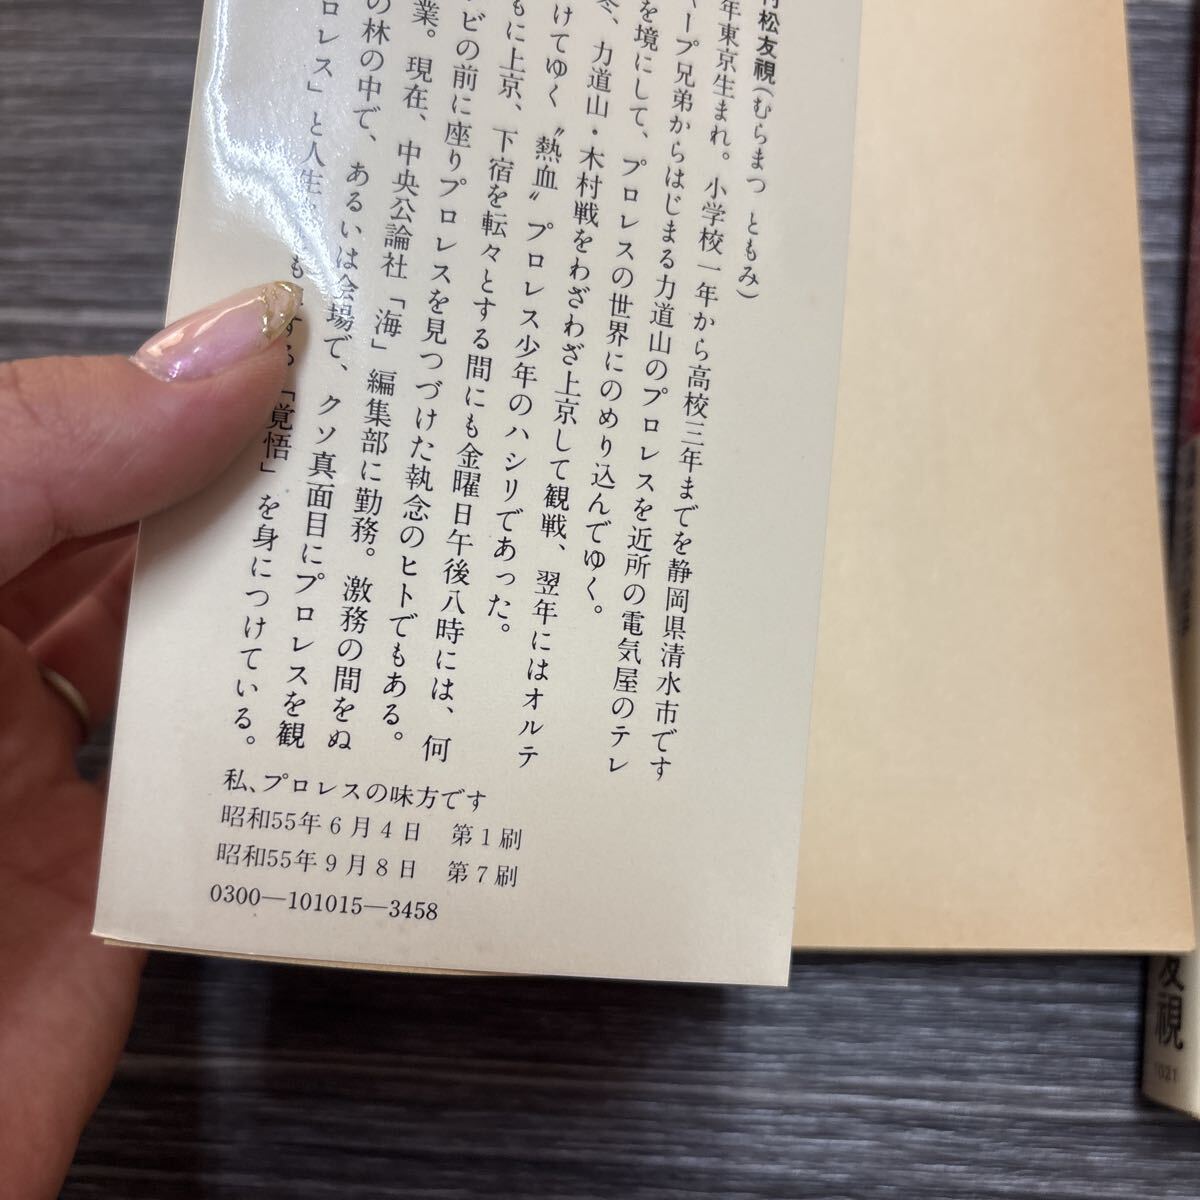 村松友視(むらまつ ともみ)
年東京生まれ。小学校一年から高校三年までを静岡県清水市です
ープ兄弟からはじまる力道山のプロレスを近所の電気屋のテレ
を境にして、プロレスの世界にのめり込んでゆく。
冬、力道山・木村戦をわざわざ上京して観戦、翌年にはオルテ
けてゆく〝熱血〟プロレス少年のハシリであった。
もに上京、下宿を転々とする間にも金曜日午後八時には、何
ビの前に座りプロレスを見つづけた執念のヒトでもある。
業。現在、中央公論社「海」編集部に勤務。激務の間をぬ
の林の中で、あるいは会場で、クソ真面目にプロレスを観
ロレス」と人生 する「覚悟」を身につけている。
私、プロレスの味方です
昭和55年6月4日 第1刷
昭和55年9月8日 第7刷
0300―101015―3458
友視
1021